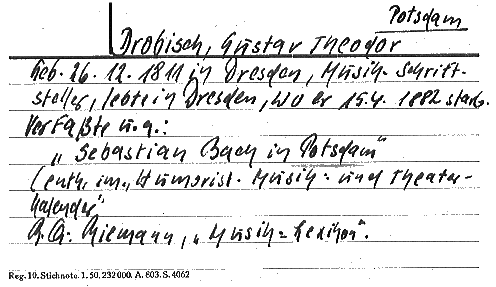 Potsdam
Drobisch, Gustav Theodor
Geb. 26. 12. 1811 in Dresden, Musik-Schrift-
steller, lebte in Dresden, wo er 15.4. 1882 starb.
Verfaßte u.a.:
„Sebastian Bach in Potsdam“
(enth. im „Humorist. Musik- und Theater-
kalender“
Riemann, „Musik-Lexikon“.
Reg. 10. Stichnote. 1. 50, 232000. A. 603. S. 4062